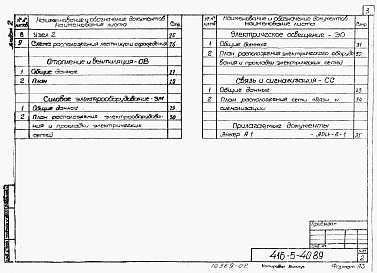 3
№№ листа
Наименование и обозначение документов
Наименование листа
Стр.
8 Узел 2 25
9 Схема расположения лестницы и ограждения 26
Отопление и вентиляция - ОВ
1 Общие данные 27
2 План 28
Силовое электрооборудование - ЭМ
1 Общие данные 29
2 План расположения электрооборудова-
ния и прокладки электрических 30
сетей
Наименование и обозначение документов
Наименование листа
Стр.
Электрическое освещение - ЭО
1 Общие данные 31
2 План расположения электрического оборудо-
вания и прокладки электрических сетей 32
Связь и сигнализация - СС
1 Общие данные 33
2 План расположения сети связи и 34
сигнализации
Прилагаемые документы
Анкер А1 35
Привязан
416-5-40.89
Лист
2
10369-02
Копировал
Формат А3